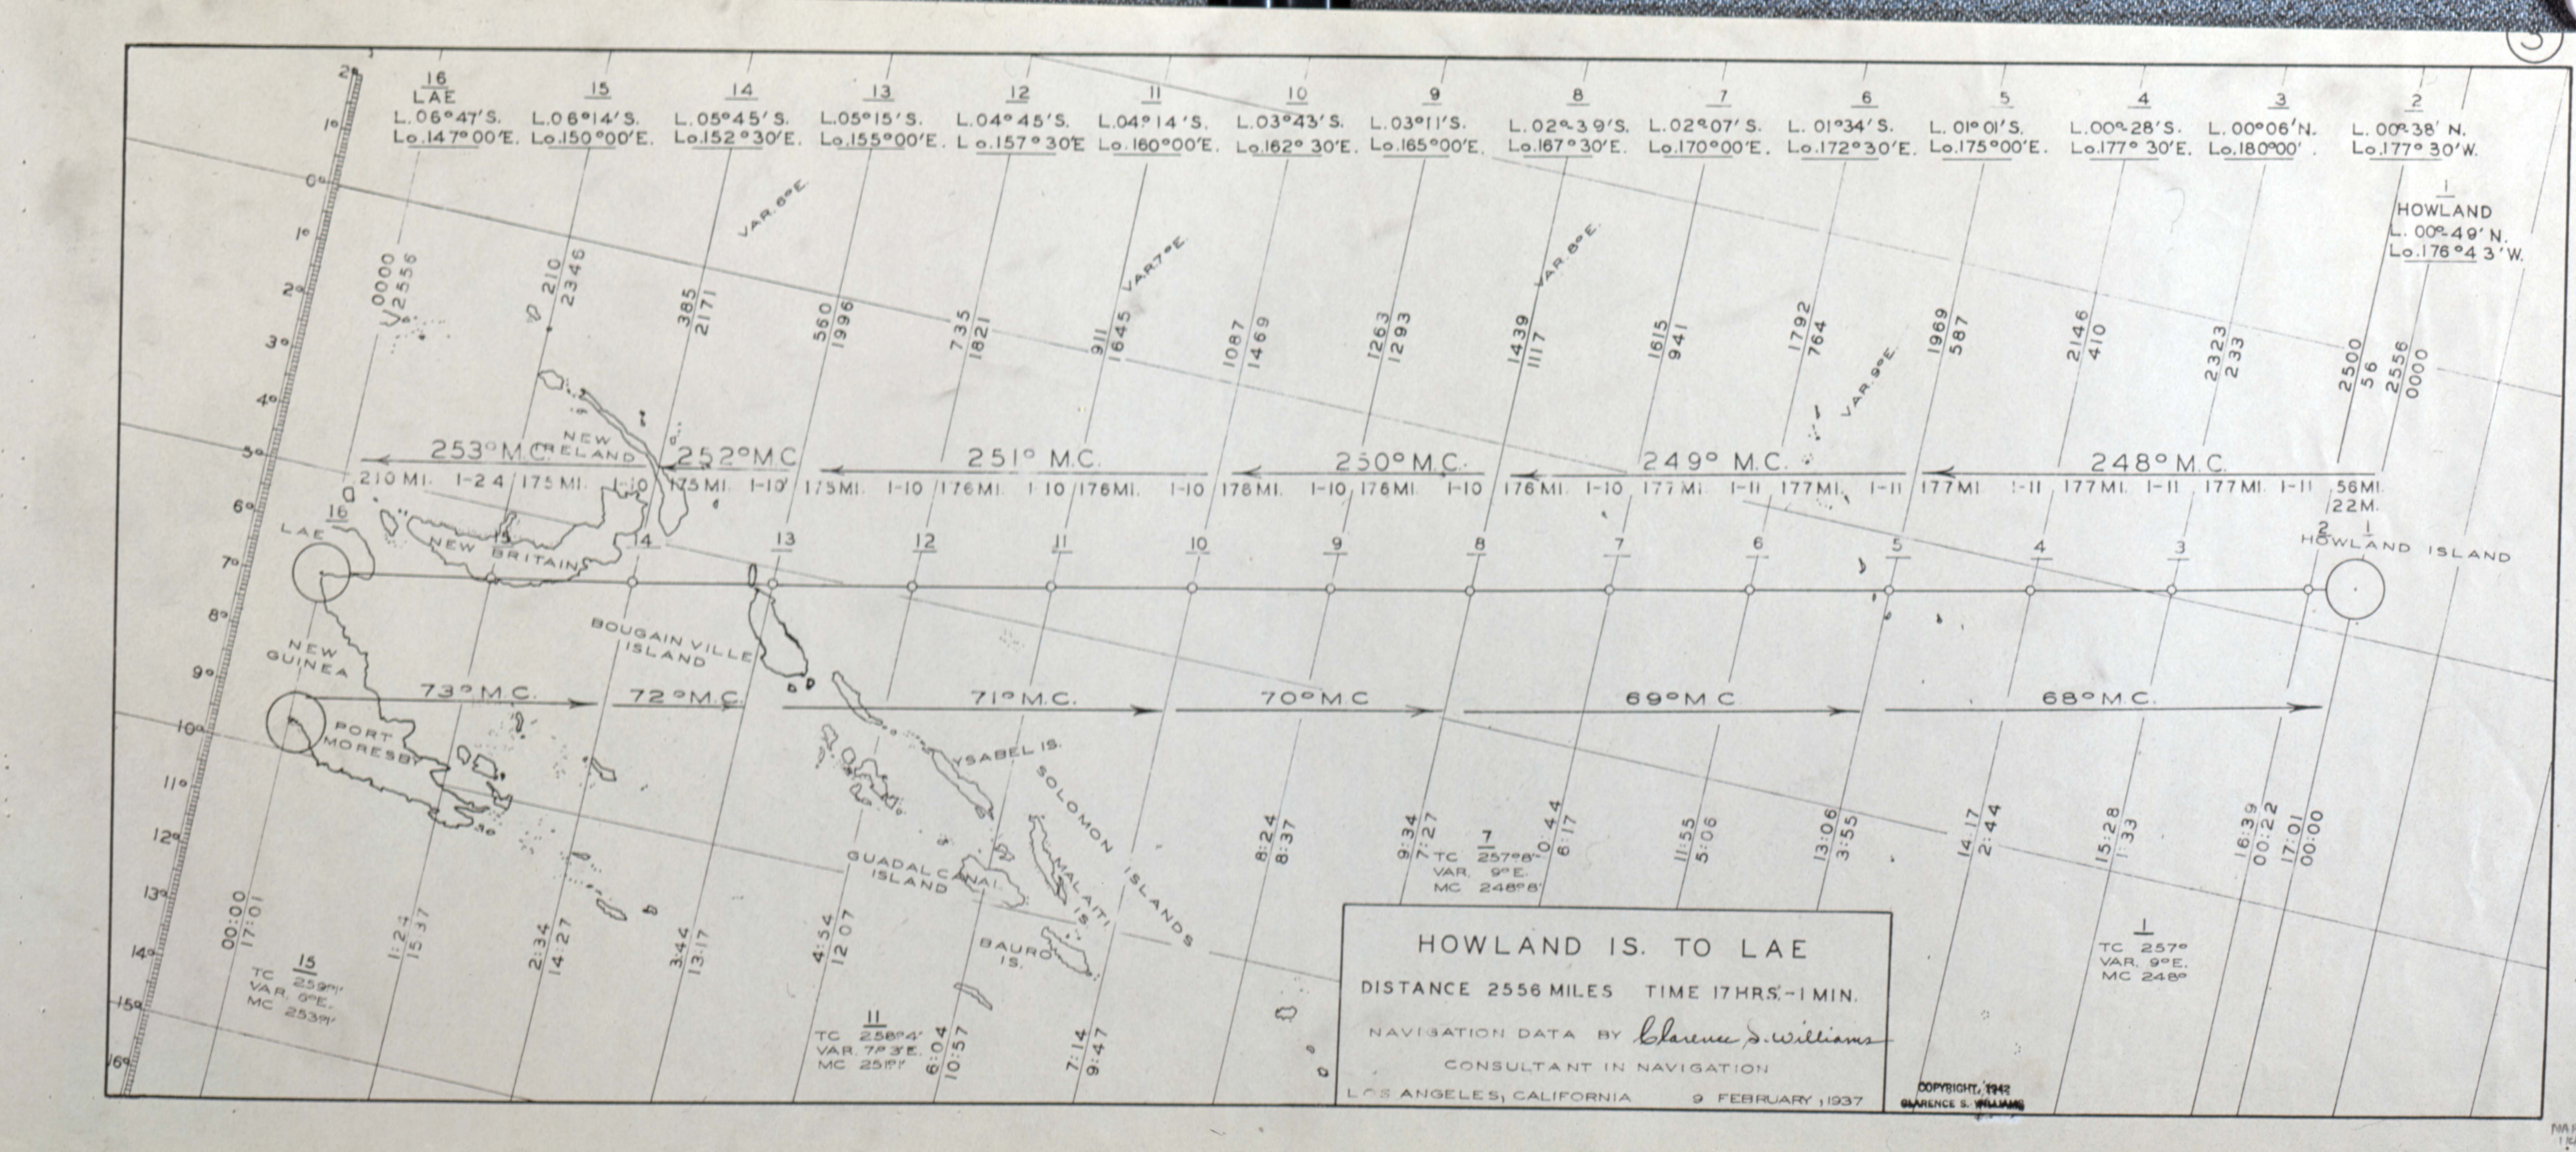 3
2°
1°
0°
1°
2°
3°
4°
5°
6°
7°
8°
9°
10°
11°
12°
13°
14°
15°
16°
16
LAE
L.06°47'S.
Lo.147°00'E.
15
L.06°14'S.
Lo.150°00'E.
14
L.05°45'S.
Lo.152°30'E.
13
L.05°15'S.
Lo.155°00'E.
12
L.04°45'S.
Lo.157°30'E
11
L.04°14'S.
Lo.160°00'E.
10
L.03°43'S.
Lo.162°30'E.
9
L.03°11'S.
Lo.165°00'E.
8
L.02°39'S.
Lo.167°30'E.
7
L.02°07'S.
Lo.170°00'E.
6
L.01°34'S.
Lo.172°30'E.
5
L.01°01'S.
Lo.175°00'E.
4
L.00°28'S.
Lo.177°30'E.
3
L.00°06'N.
Lo.180°00'.
2
L.00°38'N.
Lo.177°30'W.
1
HOWLAND
L.00°49'N.
Lo.176°43'W.
VAR.6°E.
VAR.7°E.
VAR.8°E.
VAR.9°E.
0000
2556
210
2346
385
2171
560
1996
735
1821
911
1645
1087
1469
1263
1293
1439
1117
1615
941
1792
764
1969
587
2146
410
2323
233
2500
56
2556
0000
253°M.C.
252°M.C
251° M.C.
250°M.C.
249° M.C.
248°M.C.
NEW
IRELAND
210 MI. 1-24 175 MI. 1-10 175 MI. 1-10 175 MI. 1-10 176 MI. 1 10 176 MI. 1-10 176 MI. 1-10 176 MI. 1-10 176 MI. 1-10 177 MI. 1-11 177 MI. 1-11 177 MI 1-11 177 MI. 1-11 177 MI. 1-11 56MI.
22M.
16
LAE
15
14
13
12
11
10
9
8
7
6
5
4
3
2
1
HOWLAND ISLAND
NEW BRITAIN
NEW
GUINEA
BOUGAINVILLE
ISLAND
PORT
MORESBY
73°M.C.
72°M.C.
71°M.C.
70°M.C
69°M.C
68°M.C.
YSABEL IS.
SOLOMON ISLANDS
GUADALCANAL
ISLAND
MALAITI
IS.
BAURO
IS.
00:00
17:01
1:24
15 37
2:34
14:27
3:44
13:17
4:54
12 07
6:04
10:57
7:14
9:47
8:24
8:37
9:34
7:27
6:17
11:55
5:06
13:06
3:55
14:17
2:44
15:28
1:33
16:39
00:22
17:01
00:00
15
TC
VAR. 6°E.
MC
11
TC 258°4'
VAR. 7°3'E.
MC
7
TC 257°8'
VAR. 9°E.
MC 248°8'
1
TC 257°
VAR. 9°E.
MC 248°
HOWLAND IS. TO LAE
DISTANCE 2556 MILES TIME 17HRS.-1 MIN.
NAVIGATION DATA BY Clarence S. Williams
CONSULTANT IN NAVIGATION
LOS ANGELES, CALIFORNIA 9 FEBRUARY, 1937
COPYRIGHT, 1942
CLARENCE S. WILLIAMS